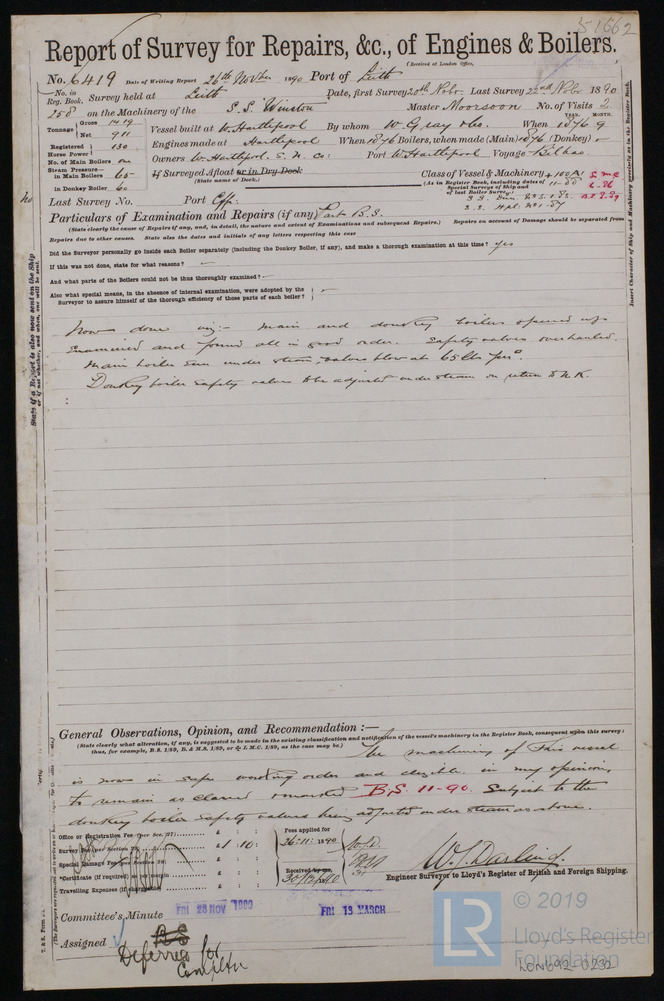 51662
Report of Survey for Repairs, &c., of Engines & Boilers.
(Received at London Office,
No. 6419 Date of Writing Report 26th Novber 1890 Port of Leith
No. in Reg. Book. Survey held at Leith Date, first Survey 20th Nobr Last Survey 22nd Nobr 1890
258 on the Machinery of the S.S. "Winston" Master Moorsoon No. of Visits 2
YEAR. MONTH.
Tonnage Gross 1419
Net 911 Vessel built at W. Hartlepool By whom W. Gray & Co. When 1876 9
Registered Horse Power 130 Engines made at Hartlepool When 1876 Boilers, when made (Main) 1876 (Donkey) -
No. of Main Boilers one Owners W. Hartlepool S. N. Co: Port W. Hartlepool Voyage Bilbao
Steam Pressure— in Main Boilers 65 If Surveyed Afloat or in Dry Dock
(State name of Dock.)
Class of Vessel & Machinery 100A1
(As in Register Book, including dates of Special Surveys of Ship and of last Boiler Survey)
in Donkey Boiler 60
Last Survey No. Port
Particulars of Examination and Repairs (if any) Part B.S.
(State clearly the cause of Repairs if any, and, in detail, the nature and extent of Examinations and subsequent Repairs.) Repairs on account of Damage should be separated from
Repairs due to other causes. State also the dates and initials of any letters respecting this case
Did the Surveyor personally go inside each Boiler separately (including the Donkey Boiler, if any), and make a thorough examination at this time? yes
If this was not done, state for what reasons? -
And what parts of the Boilers could not be thus thoroughly examined? -
Also what special means, in the absence of internal examination, were adopted by the
Surveyor to assure himself of the thorough efficiency of those parts of each boiler? -
Now done viz:- Main and donkey boilers opened up
Examined and found all in good order. Safety valves overhauled.
Main boiler seen under steam, valves blew at 65 lbs per □".
Donkey boiler safety valves to be adjusted under steam on return to U.K.
General Observations, Opinion, and Recommendation :—
(State clearly what alteration, if any, is suggested to be made in the existing classification and notification of the vessel's machinery in the Register Book, consequent upon this survey;
thus, for example, B.S. 1/89, B. & M.S. 1/89, or L.M.C. 1/89, as the case may be.)
The machinery of this vessel
is now in safe working order and eligible in my opinion
to remain as classed & marked B.S. 11-90. Subject to the
donkey boiler safety valves being adjusted under steam as above.
Office or Registration Fee (per Sec. 27)
Survey Fee (per Section 28) £ 1 : 10 :
Special Damage Fee
*Certificate (if required)
Travelling Expenses (if chargeable)
Fees applied for
26:11:1890
Received by me,
W.S. Darling.
Engineer Surveyor to Lloyd's Register of British and Foreign Shipping.
Committee's Minute FRI 28 NOV 1890 FRI 13 MARCH
Assigned B.S
Deferred for
Compltn
© 2019
LR
Lloyd's Register
Foundation
LON692-0232
Insert Character of Ship and Machinery precisely as in the Register Book.
State if a Report is also now sent on the Ship